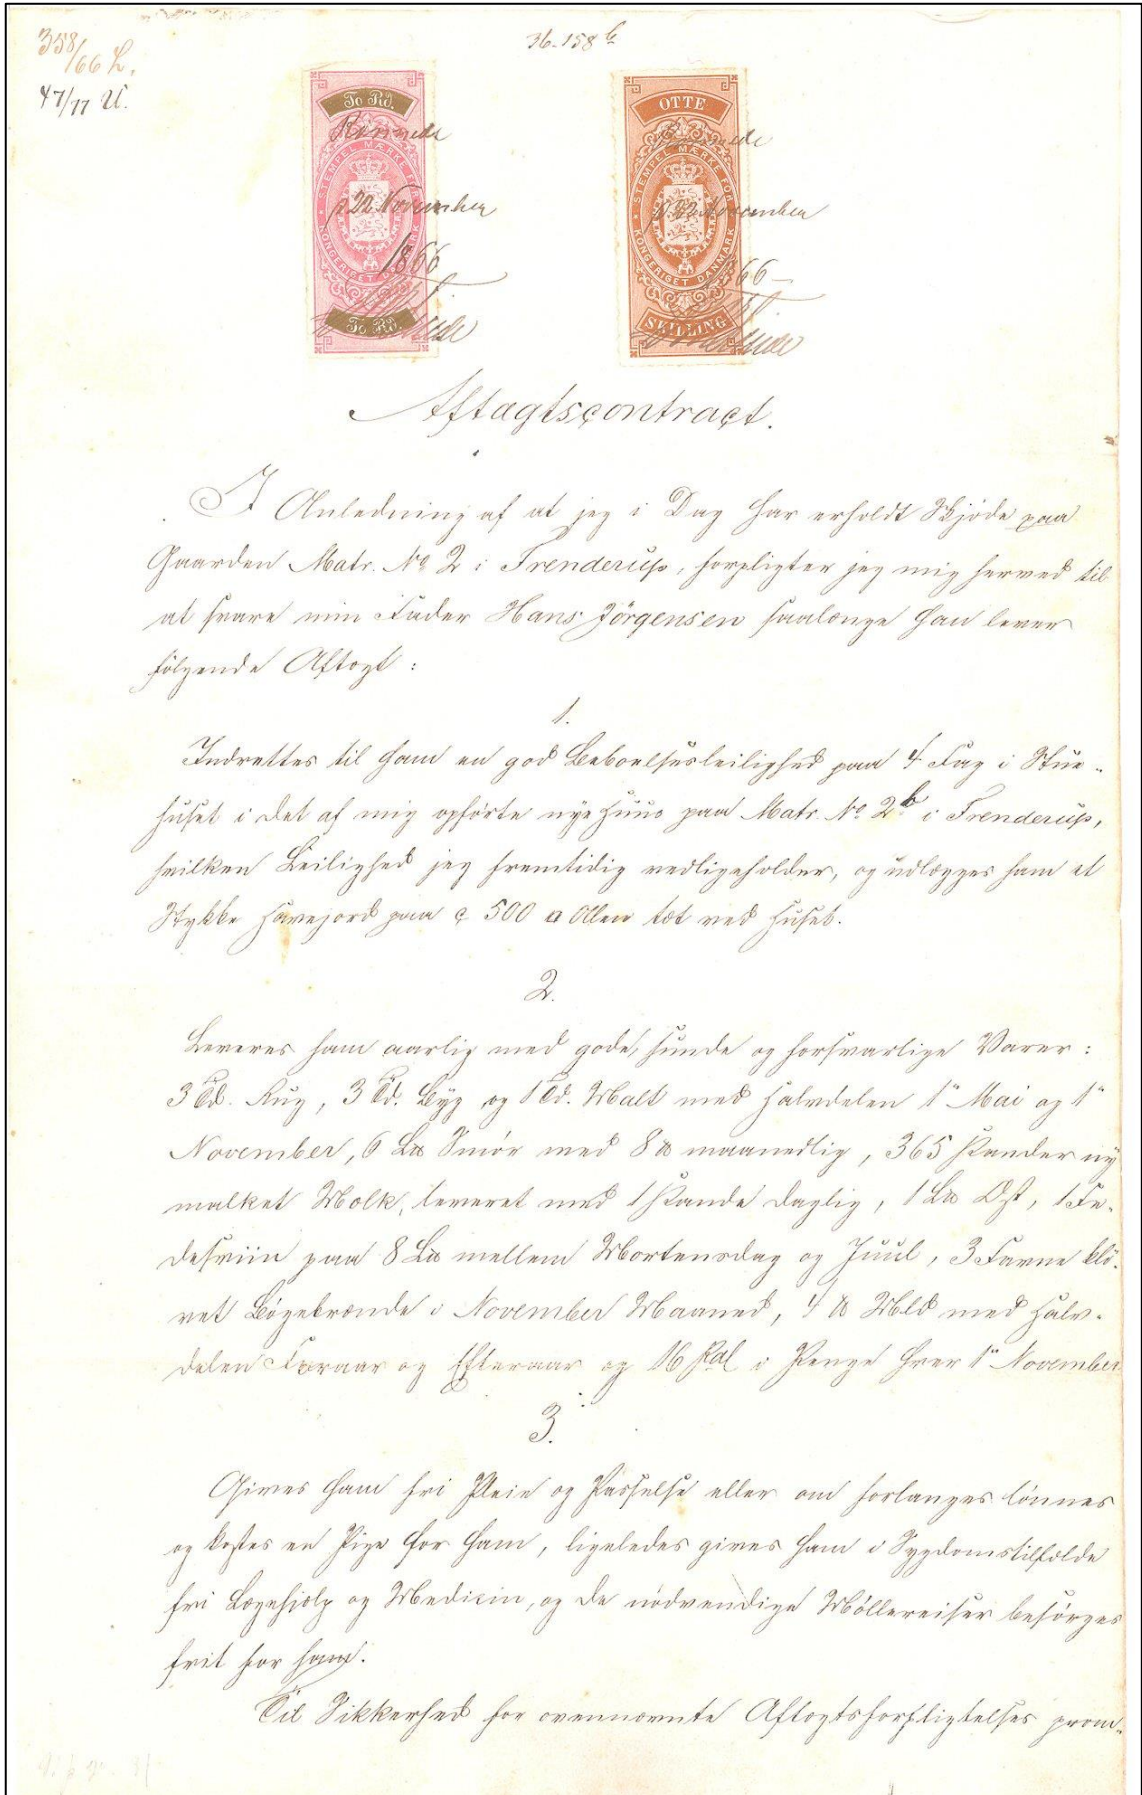 358/66 L.
47/77 U.
36-158 b
To Rd.
STEMPEL MÆRKE FOR
KONGERIGET DANMARK
To Rd.
Rønnede
p 22 November
1866
OTTE
STEMPEL MÆRKE FOR
KONGERIGET DANMARK
SKILLING
Rønnede
p. 22 November
66
Aftægtscontract.
I Anledning af at jeg i Dag har erholdt Skjøde paa
Gaarden Matr. No 2 i Frenderup, forpligter jeg mig herved til
at svare min Fader Hans Jörgensen saalænge han lever
følgende Aftægt:
1.
Indrettes til ham en god Beboelsesleilighed paa 4 Fag i Stue-
huset i det af mig opførte nye Huus paa Matr. No 2b i Frenderup,
hvilken Leilighed jeg fremtidig vedligeholder, og udlægges ham et
Stykke Havejord paa c 500 □ Alen tæt ved Huset.
2.
Leveres ham aarlig med gode, sunde og forsvarlige Varer:
3 Td. Rug, 3 Td. Byg og 1 Td. Malt med Halvdelen 1ste Mai og 1ste
November, 6 L℔ Smør med 8 ℔ maanedlig, 365 Pander ny
malket Mælk, leveret med 1 Pande daglig, 1 L℔ Ost, 1 Fe-
desviin paa 8 L℔ mellem Mortensdag og Juul, 3 Favne klö-
vet Bøgebrænde i November Maaned, 4 ℔ Uld med Halv-
delen Foraar og Efteraar og 16 Rdl i Penge hver 1ste November
3.
Gives ham fri Pleie og Passelse eller om forlanges lönnes
og kostes en Pige for ham, ligeledes gives ham i Sygdomstilfælde
fri Lægehjælp og Medicin, og de nödvendige Möllereiser besörges
frit for ham.
Til Sikkerhed for ovennævnte Aftægtsforpligtelses prom-